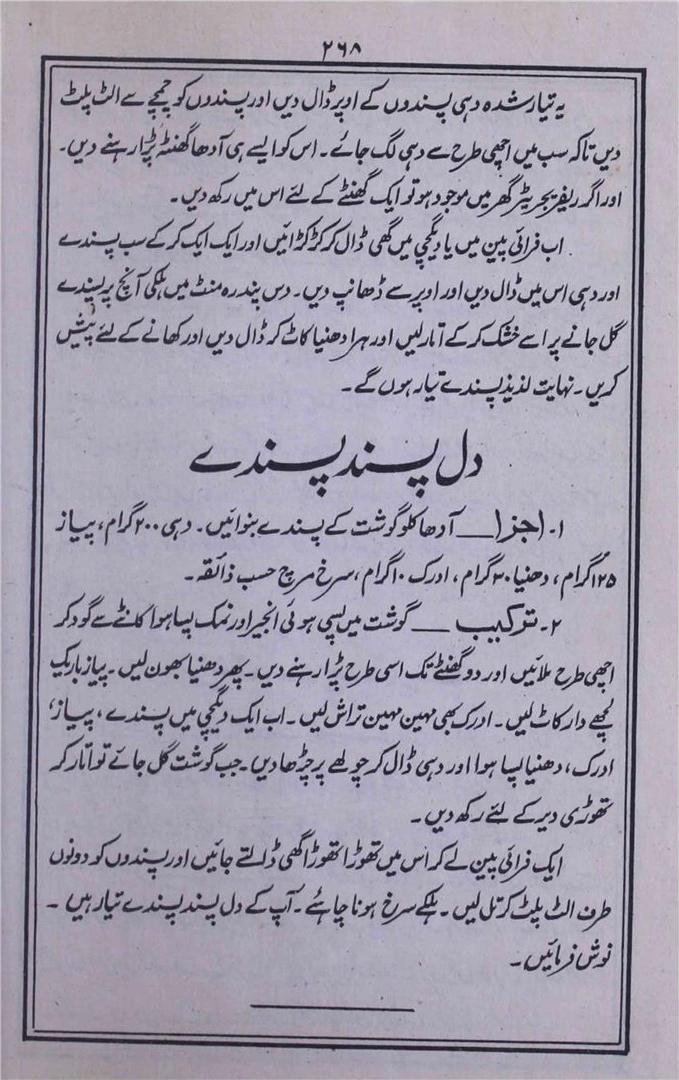 ۲۶۸
یہ تیار شدہ دہی پسندوں کے اوپر ڈال دیں اور پسندوں کو چمچے سے الٹ پلٹ
دیں تاکہ سب میں اچھی طرح سے دہی لگ جائے۔ اس کو ایسے ہی آدھا گھنٹہ پڑا رہنے دیں۔
اور اگر ریفریجریٹر گھر میں موجود ہو تو ایک گھنٹے کے لئے اس میں رکھ دیں۔
اب فرائی پین میں یا دیگچی میں گھی ڈال کر کڑکڑائیں اور ایک ایک کر کے سب پسندے
اور دہی اس میں ڈال دیں اور اوپر سے ڈھانپ دیں۔ دس پندرہ منٹ میں ہلکی آنچ پر پسندے
گل جانے پر اسے خشک کر کے اتار لیں اور ہرا دھنیا کاٹ کر ڈال دیں اور کھانے کے لئے پیش
کریں۔ نہایت لذیذ پسندے تیار ہوں گے۔
دل پسند پسندے
۱۔ اجزا ــــ آدھا کلو گوشت کے پسندے بنوائیں۔ دہی ۲۰۰ گرام، پیاز
۱۲۵ گرام، دھنیا ۳۰ گرام، ادرک ۱۰ گرام، سرخ مرچ حسب ذائقہ۔
۲۔ ترکیب ــــ گوشت میں پسی ہوئی انجیر اور نمک پسا ہوا کانٹے سے گود کر
اچھی طرح ملائیں اور دو گھنٹے تک اسی طرح پڑا رہنے دیں۔ پھر دھنیا بھون لیں۔ پیاز باریک
لچھے دار کاٹ لیں۔ ادرک بھی مہین مہین تراش لیں۔ اب ایک دیگچی میں پسندے، پیاز،
ادرک، دھنیا پسا ہوا اور دہی ڈال کر چولھے پر چڑھا دیں۔ جب گوشت گل جائے تو اتار کر
تھوڑی دیر کے لئے رکھ دیں۔
ایک فرائی پین لے کر اس میں تھوڑا تھوڑا گھی ڈالتے جائیں اور پسندوں کو دونوں
طرف الٹ پلٹ کر تل لیں۔ ہلکے سرخ ہونا چاہئے۔ آپ کے دل پسند پسندے تیار ہیں۔
نوش فرمائیں۔